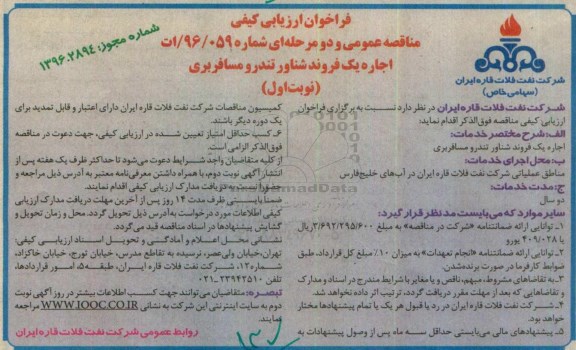 فراخوان ارزیابی کیفی
مناقصه عمومی و دو مرحله‌ای شماره ۰۵۹/۹۶/ات
اجاره یک فروند شناور تندرو مسافربری
(نوبت اول)
شماره مجوز: ۱۳۹۶.۲۸۹۴
شرکت نفت فلات قاره ایران
(سهامی خاص)
شرکت نفت فلات قاره ایران در نظر دارد نسبت به برگزاری فراخوان
ارزیابی کیفی مناقصه فوق‌الذکر اقدام نماید:
الف: شرح مختصر خدمات:
اجاره یک فروند شناور تندرو مسافربری
ب: محل اجرای خدمات:
مناطق عملیاتی شرکت نفت فلات قاره ایران در آب‌های خلیج‌فارس
ج: مدت خدمات:
دو سال
سایر موارد که می‌بایست مد نظر قرار گیرد:
۱ـ توانایی ارائه ضمانتنامه «شرکت در مناقصه» به مبلغ ۳/۶۹۲/۲۹۵/۶۰۰ریال
یا ۴۰۹/۰۲۸ یورو
۲ـ توانایی ارائه ضمانتنامه «انجام تعهدات» به میزان ۱۰٪ مبلغ کل قرارداد، طبق
ضوابط کارفرما در صورت برنده‌شدن.
۳ـ به تقاضاهای مشروط، مبهم، ناقص و یا مغایر با شرایط مندرج در اسناد و مدارک
و تقاضاهایی که بعد از مهلت مقرر دریافت گردد، ترتیب اثر داده نخواهد شد.
۴ـ شرکت نفت فلات قاره ایران در رد یا قبول هر یک یا تمام پیشنهادها مختار
خواهد بود.
۵ـ پیشنهادهای مالی می‌بایستی حداقل سه ماه پس از وصول پیشنهادات به
کمیسیون مناقصات شرکت نفت فلات قاره ایران دارای اعتبار و قابل تمدید برای
یک دوره دیگر باشند.
۶ـ کسب حداقل امتیاز تعیین شده در ارزیابی کیفی، جهت دعوت در مناقصه
فوق‌الذکر الزامی است.
از کلیه متقاضیان واجد شرایط دعوت می‌شود تا حداکثر ظرف یک هفته پس از
انتشار آگهی نوبت دوم، با همراه داشتن معرفی‌نامه معتبر به آدرس ذیل مراجعه و
حضوراً نسبت به دریافت مدارک ارزیابی کیفی اقدام نمایند.
ضمنا بایستی ظرف مدت ۱۴ روز پس از آخرین مهلت دریافت مدارک ارزیابی
کیفی اطلاعات مورد درخواست به آدرس ذیل تحویل گردد. محل و زمان تحویل و
گشایش پیشنهادها در اسناد مناقصه قید می گردد.
نشانی محل اعلام و آمادگی و تحویل اسناد ارزیابی کیفی:
تهران، خیابان ولی‌عصر، نرسیده به تقاطع مدرس، خیابان تورج، خیابان خاکزاد،
شماره۱۲، شرکت نفت فلات قاره ایران، طبقه۵، امور قراردادها،
تلفن: ۲۳۹۴۲۵۱۰ـ۰۲۱
تبصره: متقاضیان می‌توانند جهت کسب اطلاعات بیشتر در روز آگهی نوبت
دوم به سایت اینترنتی این شرکت به نشانی WWW.IOOC.CO.IR مراجعه
نمایند.
روابط عمومی شرکت نفت فلات قاره ایران